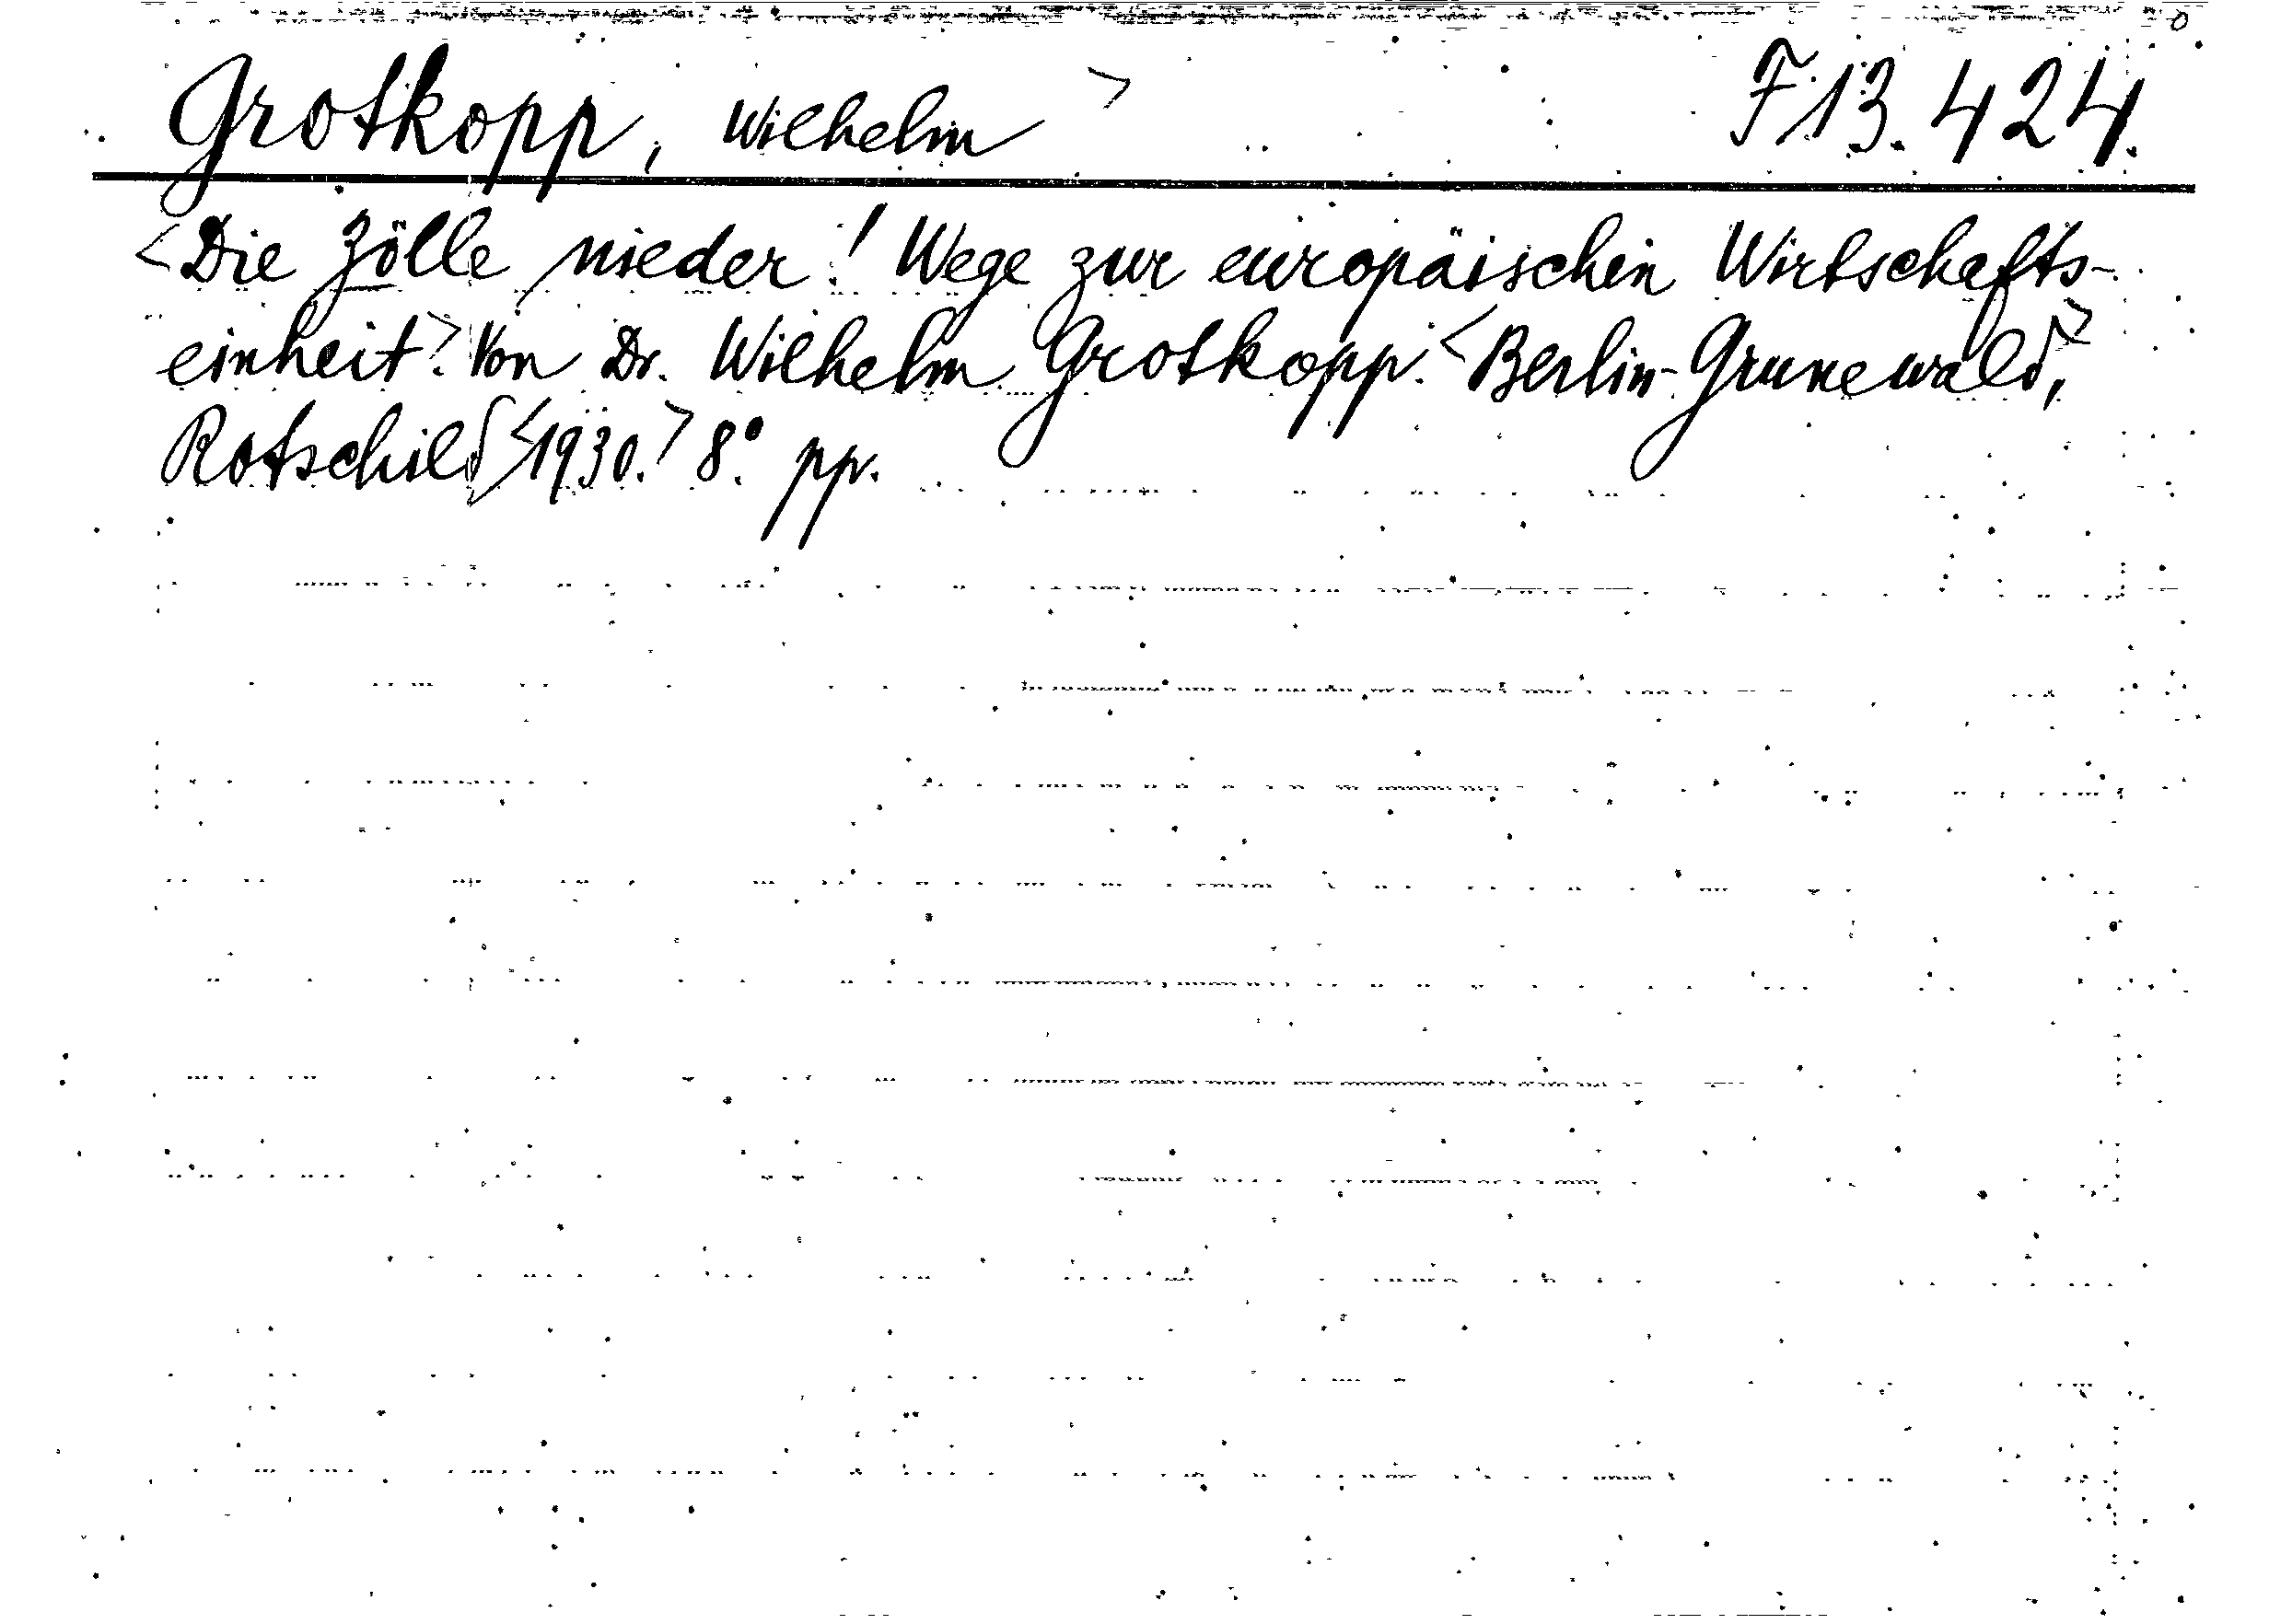 Grotkopp, Wilhelm > F 13.424.
<Die Zölle nieder! Wege zur europäischen Wirtschafts-
einheit.> Von Dr. Wilhelm Grotkopp. <Berlin-Grunewald,>
Rotschild <1930.> 8° pp.